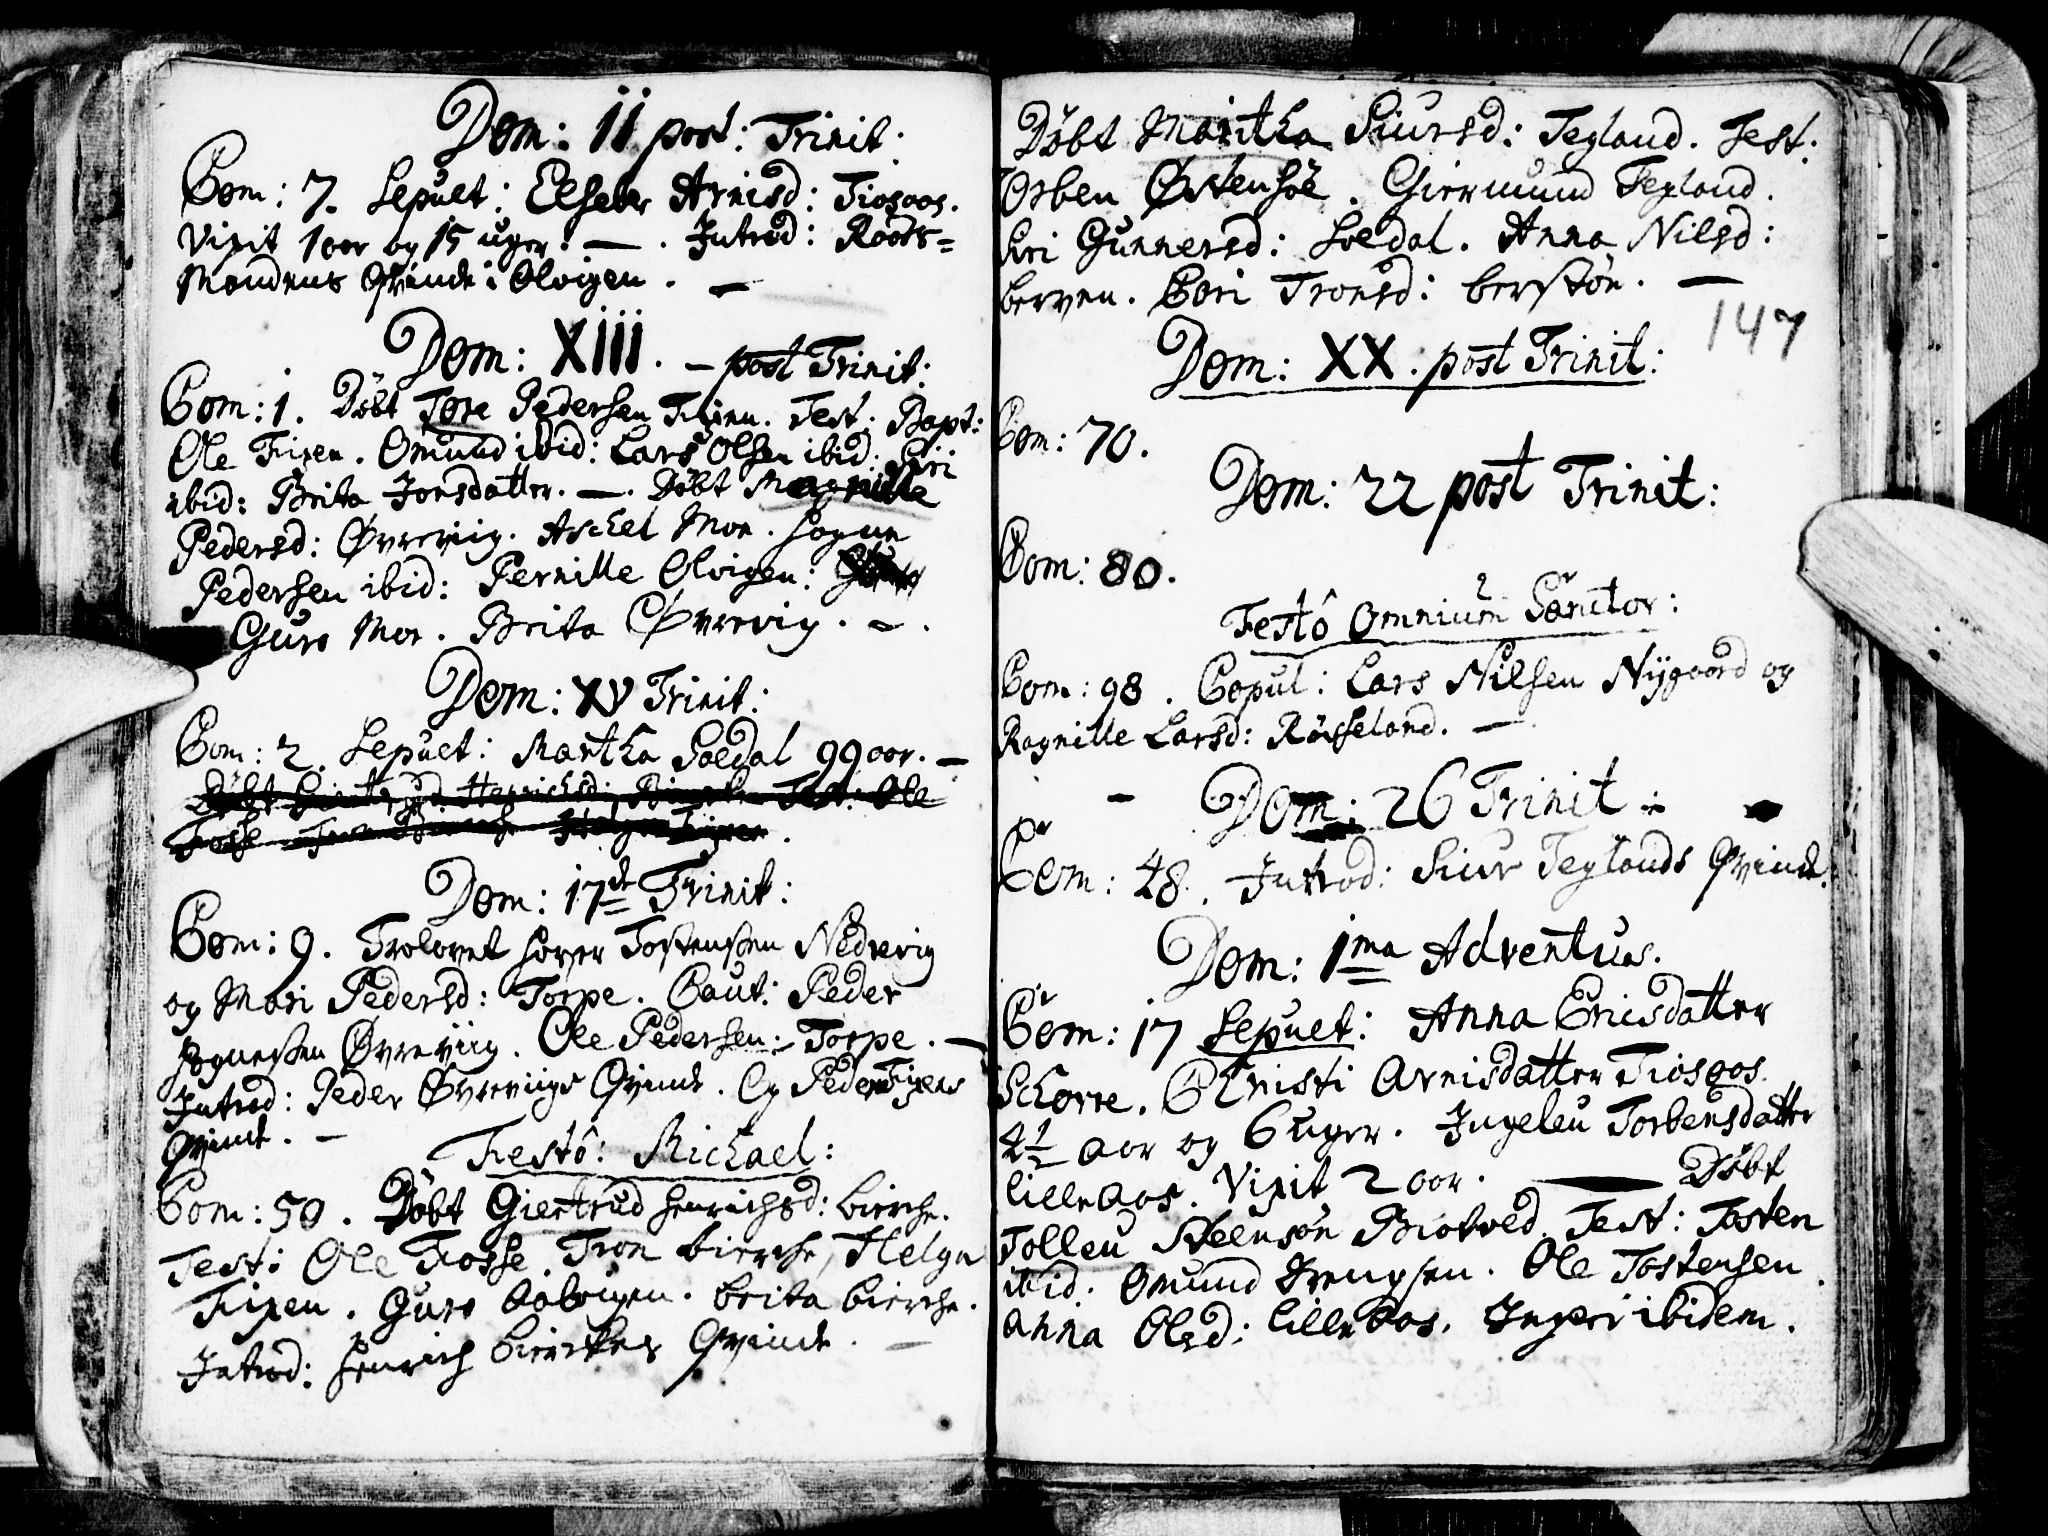 Dom: 11 post: Trinit:
Com: 7. Sepult: Elsebe Arnisd: Tiosaas.
Vixit 1 aar og 15 uger. — . Introd: Raads-
Mandens Qvinde i Olvigen. —
Dom: XIII. - post Trinit:
Com: 1. Döbt Tore Pedersen Fixen. Test. Bapt:
Ole Fixen. Omund ibid: Lars Olsen ibid: Siri
ibid: Brita Jonsdatter. — . Döbt Magnilla
Pedersd: Øvrevig. Aschel Moe. Hogne
Pedersen ibid: Pernille Olvigen:
Guro Moe. Brita Øvrevig. - .
Dom: XV Trinit:
Com: 2. Sepult: Martha Soedal 99 aar. —
Döbt Henrichsd: Test: Ole
Fosse Helge Fixen.
Dom: 17de Trinit:
Com: 9. Trolovet Torstensen Nedrevig
og Mari Pedersd: Torpe. Caut: Peder
Hognesen Øvreviig. Ole Pedersen: Torpe. —
Introd: Peder Øvreviigs Qvinde. Og Peder Fixens
Qvinde. —
Festô: Michael:
Com: 50. Döbt Giertrud Henrichsd: Bierche.
Test: Ole Fosse. Tron Bierche, Helge
Fixen. Guro Aalvigen. Brita Bierche.
Introd: Henrich Bierches Qvinde. —
Döbt Maritha Siursd: Tegland. Test:
Osben Østensöe. Giermund Tegland.
Siri Gunnersd: Soedal. Anna Nilsd:
Berven. Cari Tronsd: Berstön. —
147
Dom: XX. post Trinit:
Com: 70.
Dom: 22 post Trinit:
Com: 80.
Festô Omnium Sanctor:
Com: 98. Copul: Lars Nilsen Nygaard og
Ragnille Larsd: Röisseland. —
- Dom: 26 Trinit:
Com: 48. Introd: Siur Teglands Qvinde.
Dom: 1ma Adventus.
Com: 17 Sepult: Anna Ericsdatter
Schorre. Christi Arnisdatter Tiosaas
4½ aar og 6 uger. Ingeleu Torbensdatter
Lilleaas. Vixit 2 aar. — Döbt
Tolleu Steensön Biotved. Test: Tosten
ibid. Omund . Ole Tostensen.
Anna Olsd: Lilleaas. Ingeri ibidem.